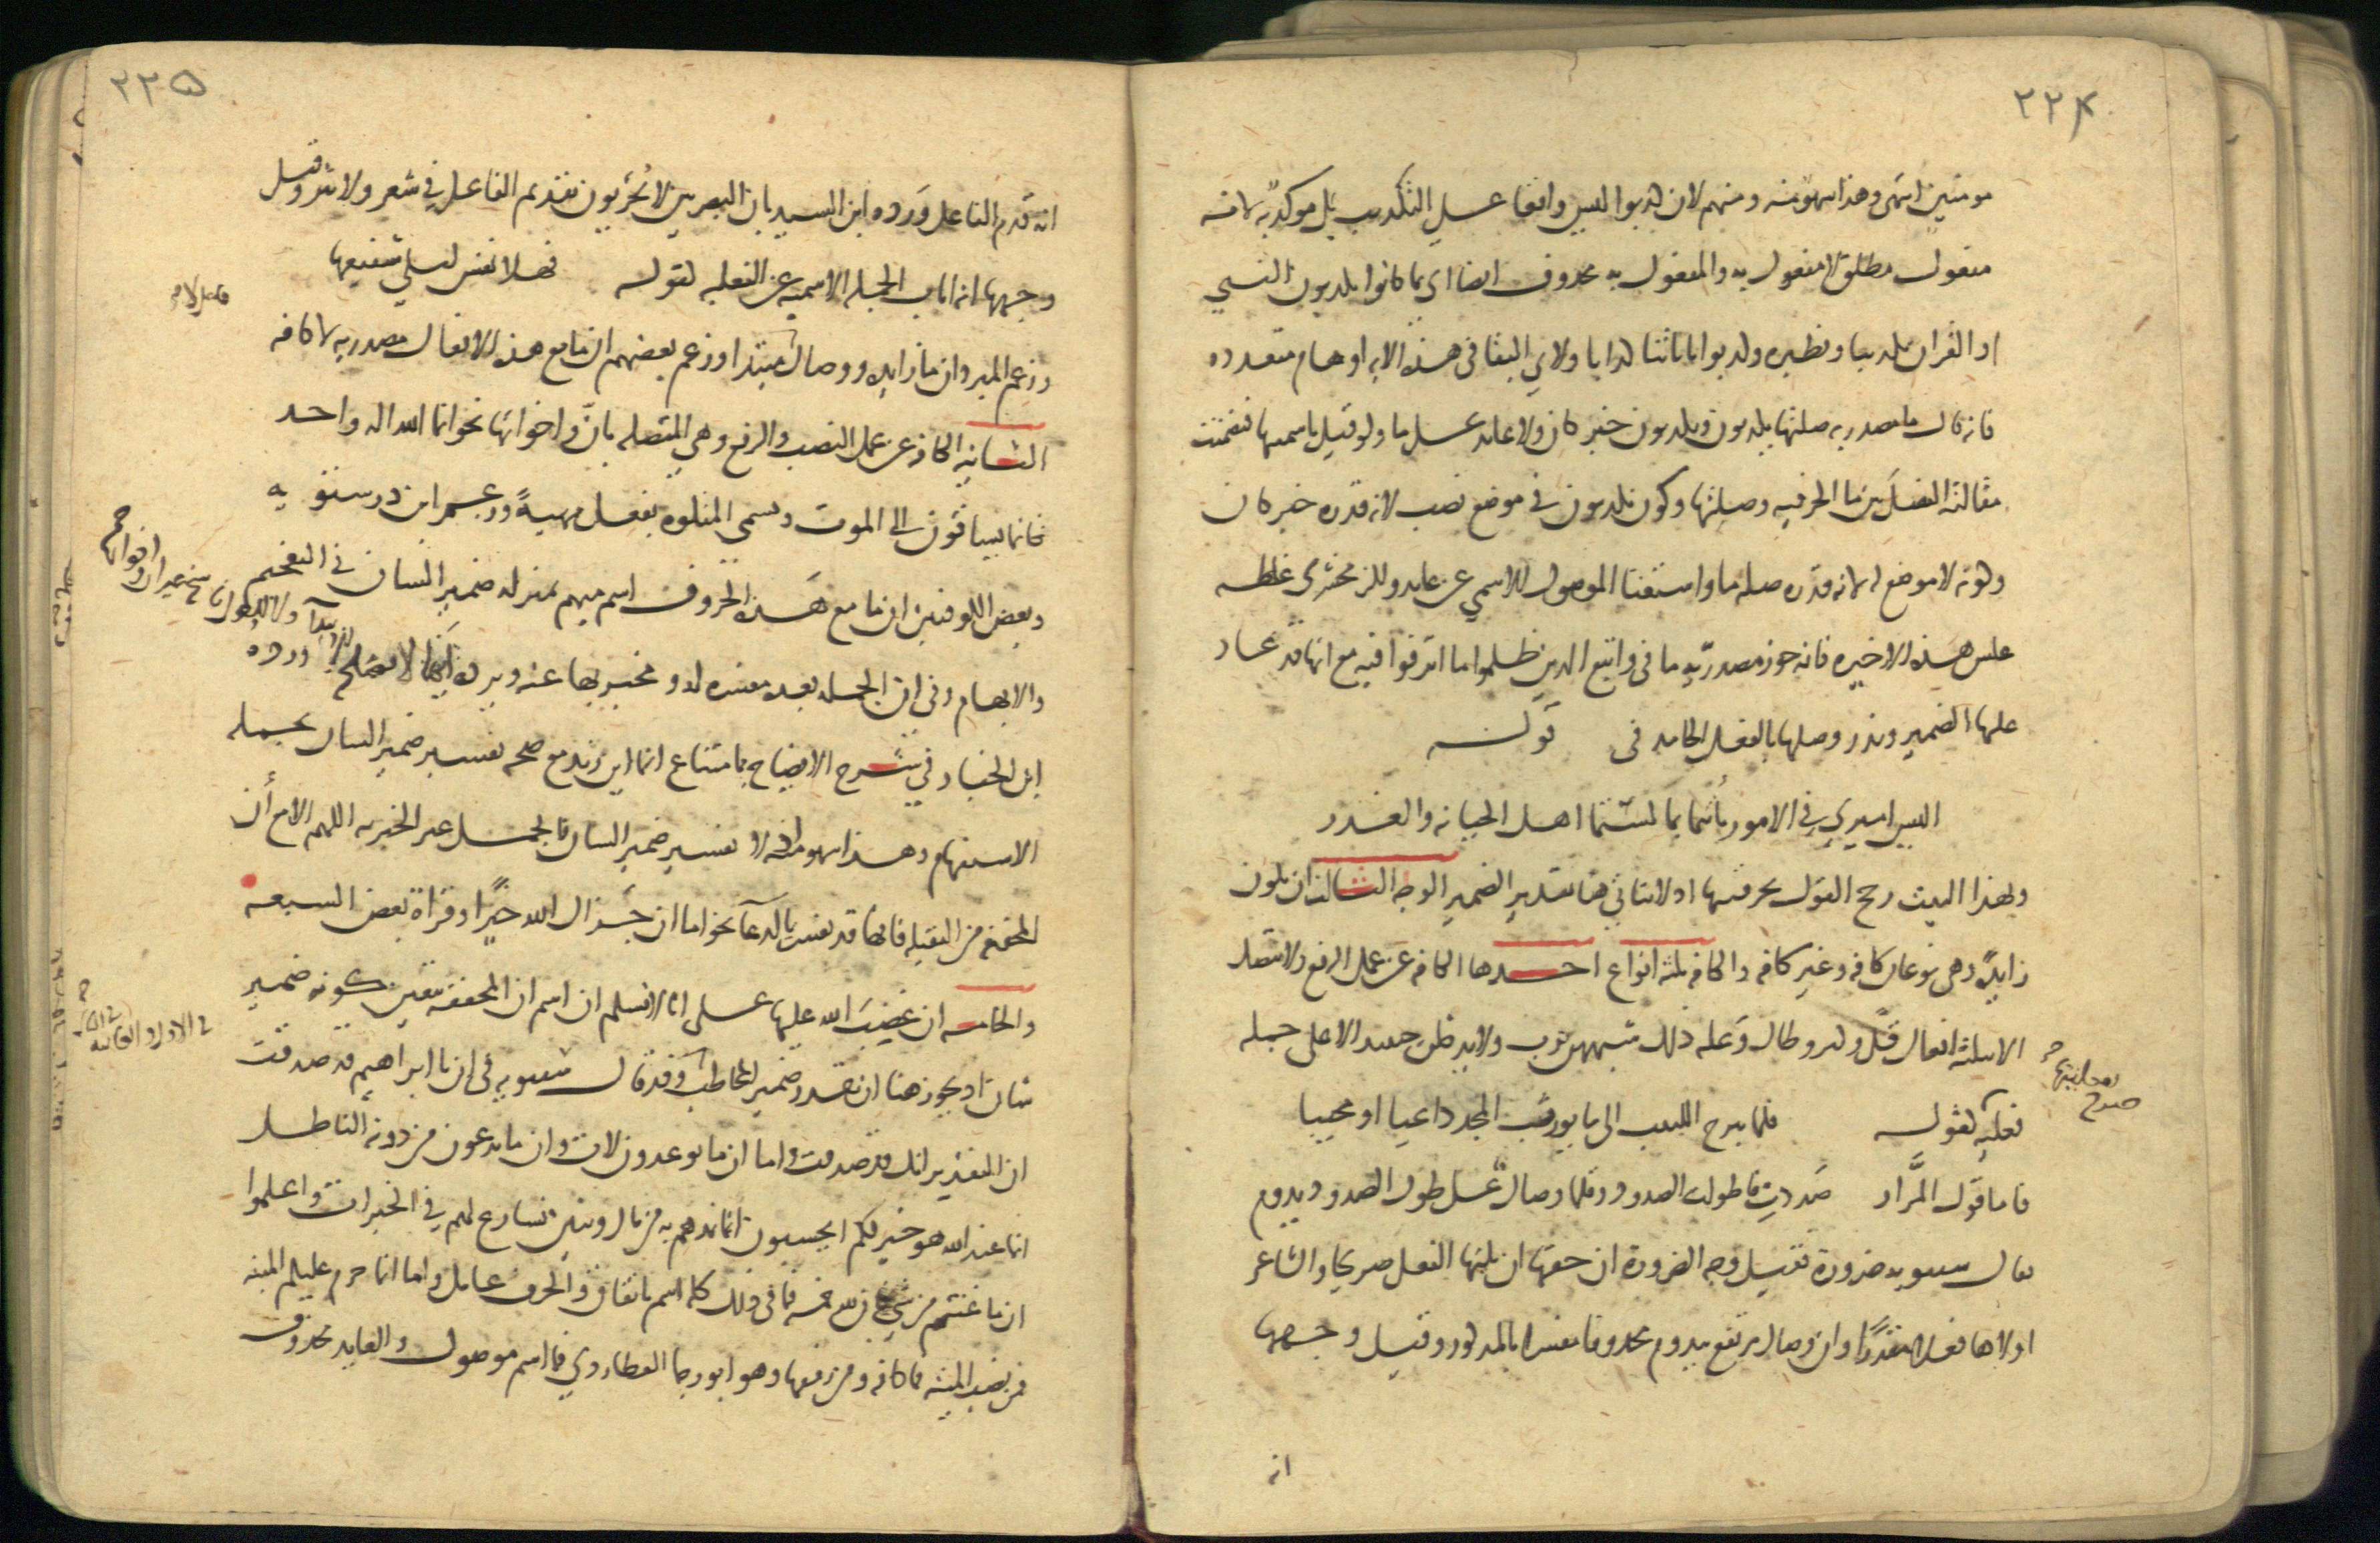 ٢٢٤
مومنين انتهى وهذا سهو منه ومنهم لان كذبوا ليس واقعا على التكذيب بل موكد به لانه
مفعول مطلق لا مفعول به والمفعول به محذوف ايضا اى بما كانوا يكذبون النبي
او القران تكذيبا ونظيره وكذبوا باياتنا كذابا ولابي البقا في هذه الايه اوهام متعدده
فانه قال ما مصدريه صلتها يكذبون ويكذبون خبر كان ولا عايد على ما ولو قيل باسميتها فتضمنت
مقالته الفصل بين ما الحرفيه وصلتها وكون يكذبون في موضع نصب لانه قدره خبر كان
وكونه لا موضع له لانه قدره صله ما واستغنا الموصول الاسمي عن عايد وللزمخشرى غلطه
عكس هذه الاخيره فانه جوز مصدريه ما في واتبع الذين ظلموا ما اترفوا فيه مع انها قد عاد
عليها الضمير وندر وصلها بالفعل الجامد فى قوله
اليس اميري في الامور بانتما بما لستما اهل الخيانه والغدر
وبهذا البيت رجح القول بحرفيتها اذ لا يتاتي هنا تقدير الضمير الوجه الثالث ان تكون
زايدة وهى نوعان كافه وغير كافه والكافه ثلثه انواع احدها الكافه عن عمل الرفع ولا تتصل
الا بثلثه افعال قل وكثر وطال وعله ذلك شبههن برب ولا يدخلن حينئذ الا على جمله
فعليه كقوله قلما يبرح اللبيب الى ما يورث المجد داعيا او مجيبا
فاما قول المرار صددت فاطولت الصدود وقلما وصال على طول الصدود يدوم
فقال سيبويه ضرورة فقيل وجه الضرورة ان حقها ان يليها الفعل صريحا والشاعر
اولاها فعلا مقدرا وان وصال مرتفع بيدوم محذوفا مفسرا بالمذكور وقيل وجهها
انه
٢٢٥
انه قدم الفاعل ورده ابن السيد بان البصريين لا يجيزون تقديم الفاعل في شعر ولا نثر وقيل
وجهها انه اناب الجمله الاسميه عن الفعليه كقوله فهلا نفس ليلى شفيعها
وزعم المبرد ان ما زايده ووصال مبتدا وزعم بعضهم ان ما مع هذه الافعال مصدريه لا كافه
الثانيه الكافه عن عمل النصب والرفع وهي المتصله بان واخواتها نحو انما الله اله واحد
كانما يساقون الى الموت وتسمى المتلوه بفعل مهيئة وزعم ابن درستويه
وبعض الكوفيين ان ما مع هذه الحروف اسم مبهم بمنزله ضمير الشان في التفخيم
والابهام وفي ان الجمله بعده مفسره له ومخبر بها عنه ويرده انها لا تصلح للابتدا بها ورده
ابن الخباز في شرح الايضاح بامتناع انما اين زيد مع صحه تفسير ضمير الشان بجمله
الاستفهام وهذا سهو منه اذ لا يفسر ضمير الشان بالجمل غير الخبريه اللهم الا مع أن
المخففه من الثقيله فانها قد تفسر بالدعا نحو اما ان جزاك الله خيرا وقراة بعض السبعه
والخامسه ان غضب الله عليها على انا لا نسلم ان اسم ان المخففه يتعين كونه ضمير
شان اذ يجوز هنا ان يقدر ضمير المخاطب وقد قال سيبويه في ان يا ابراهيم قد صدقت
ان التقدير انك قد صدقت واما ان ما توعدون لات وان ما يدعون من دونه الباطل
انما عند الله هو خير لكم ايحسبون انما نمدهم به من مال وبنين نسارع لهم في الخيرات واعلموا
ان ما غنمتم من شي فان لله خمسه فما فى ذلك كله اسم باتفاق والحرف عامل واما انما حرم عليكم الميته
فمن نصب الميته فما كافه ومن رفعها وهو ابو رجا العطاردي فما اسم موصول والعايد محذوف